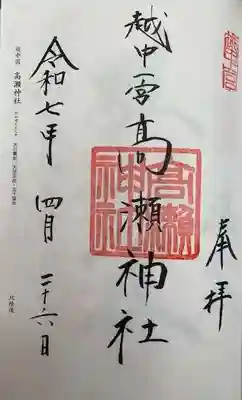 奉拝
越中一宮高瀬神社
高瀬神社
令和七年 四月 二十六日
越中国 高瀬神社
北陸道